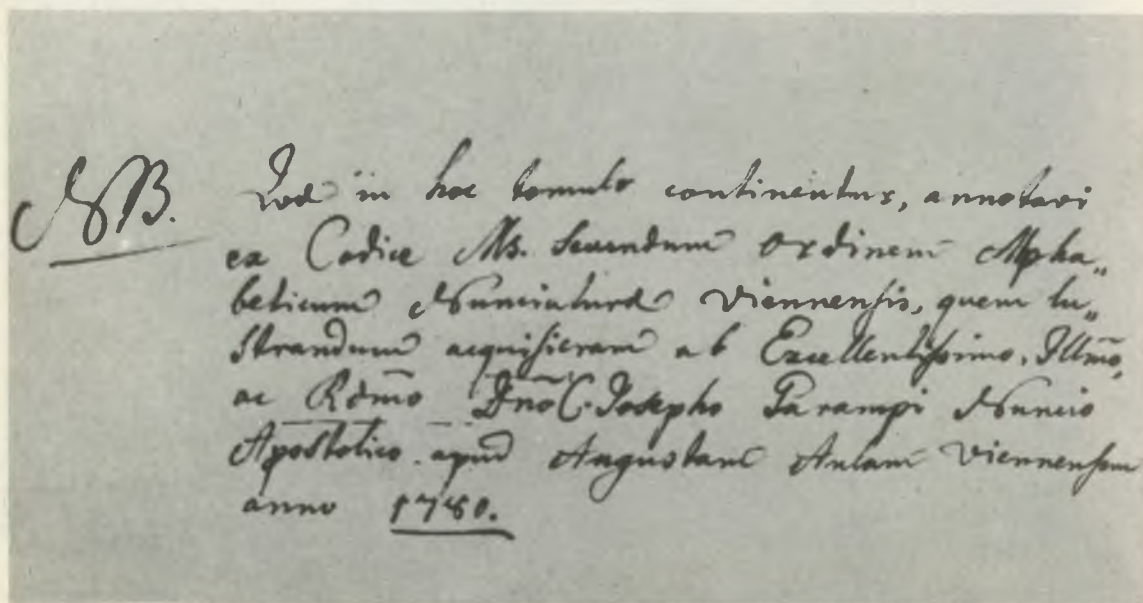 NB. Quae in hoc tomulo continentur, annotavi
ex Codice Ms. secundum ordinem Alpha„
beticum Nunciaturae Viennensis, quem lu„
strandum acquisieram ab Excellentissimo, Illm̄o,
ac Rdm̄o Dn̄o C. Josepho Garampi Nuncio
Apostolico apud Augustam Aulam Viennensem
anno 1780.